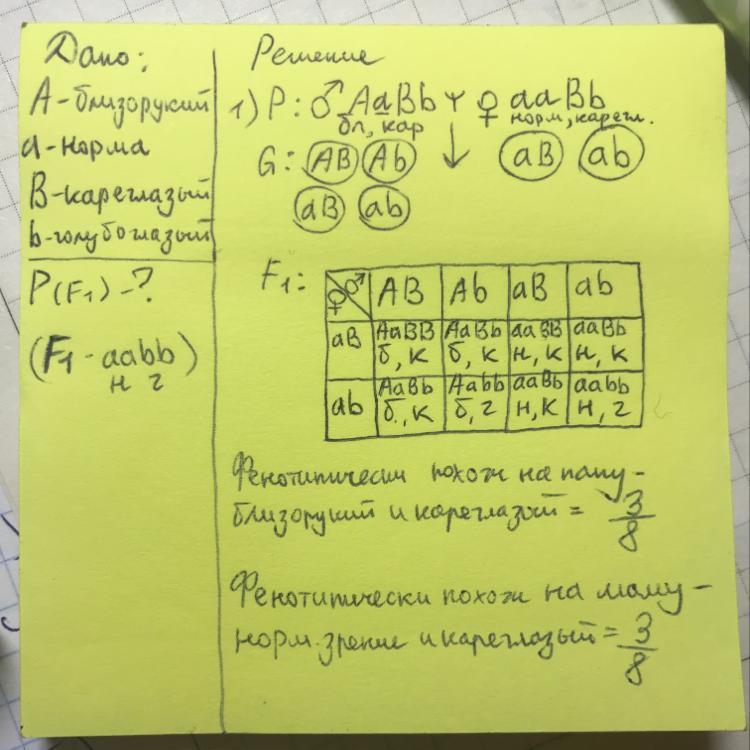 Дано:
А - близорукий
а - норма
В - кареглазый
b - голубоглазый
P(F₁) - ?
(F₁ - aabb)
н г
Решение
1) P: ♂ AaBb × ♀ aaBb
бл, кар норм, карегл.
G: AB Ab ↓ aB ab
aB ab
F₁: ♀ ♂ AB Ab aB ab
aB AaBB AaBb aaBB aaBb
б, к б, к н, к н, к
ab AaBb Aabb aaBb aabb
б, к б, г н, к н, г
Фенотипически похож на папу -
близорукий и кареглазый = 3/8
Фенотипически похож на маму -
норм. зрение и кареглазый = 3/8